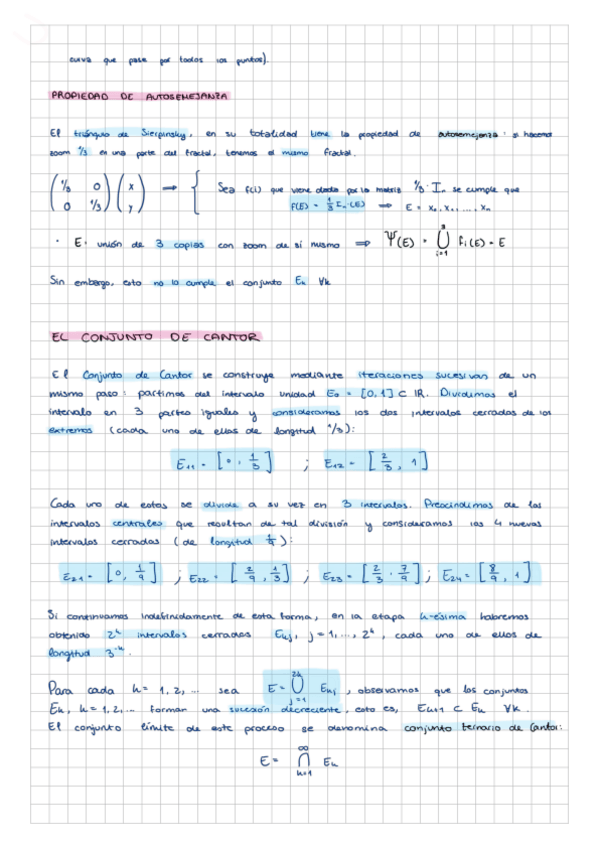 curva que pase por todos los puntos).
PROPIEDAD DE AUTOSEMEJANZA
El triángulo de Sierpinsky, en su totalidad tiene la propiedad de autosemejanza: si hacemos
zoom 1/3 en una parte del fractal, tenemos el mismo fractal.
( 1/3 0 ; 0 1/3 ) ( x ; y ) ⟹ { Sea f(i) que viene dada por la matriz 1/3 · In se cumple que
f(E) = 1/3 In · (E) ⟹ E = x0, x1, ..., xn
· E: unión de 3 copias con zoom de sí mismo ⟹ Ψ(E) = ⋃_{i=1}^{3} fi(E) = E
Sin embargo, esto no lo cumple el conjunto Ek ∀k
EL CONJUNTO DE CANTOR
El Conjunto de Cantor se construye mediante iteraciones sucesivas de un
mismo paso: partimos del intervalo unidad E0 = [0,1] ⊂ ℝ. Dividimos el
intervalo en 3 partes iguales y consideramos los dos intervalos cerrados de los
extremos (cada uno de ellos de longitud 1/3):
E11 = [0, 1/3] ; E12 = [2/3, 1]
Cada uno de estos se divide a su vez en 3 intervalos. Prescindimos de los
intervalos centrales que resultan de tal división y consideramos los 4 nuevos
intervalos cerrados (de longitud 1/9):
E21 = [0, 1/9] ; E22 = [2/9, 1/3] ; E23 = [2/3, 7/9] ; E24 = [8/9, 1]
Si continuamos indefinidamente de esta forma, en la etapa k-ésima habremos
obtenido 2^k intervalos cerrados Ekj, j = 1, ..., 2^k, cada uno de ellos de
longitud 3^-k.
Para cada k = 1, 2, ... sea E = ⋃_{j=1}^{2k} Ekj, observamos que los conjuntos
Ek, k = 1, 2, ... forman una sucesión decreciente, esto es, Ek+1 ⊂ Ek ∀k.
El conjunto límite de este proceso se denomina conjunto ternario de Cantor:
E = ⋂_{k=1}^{∞} Ek